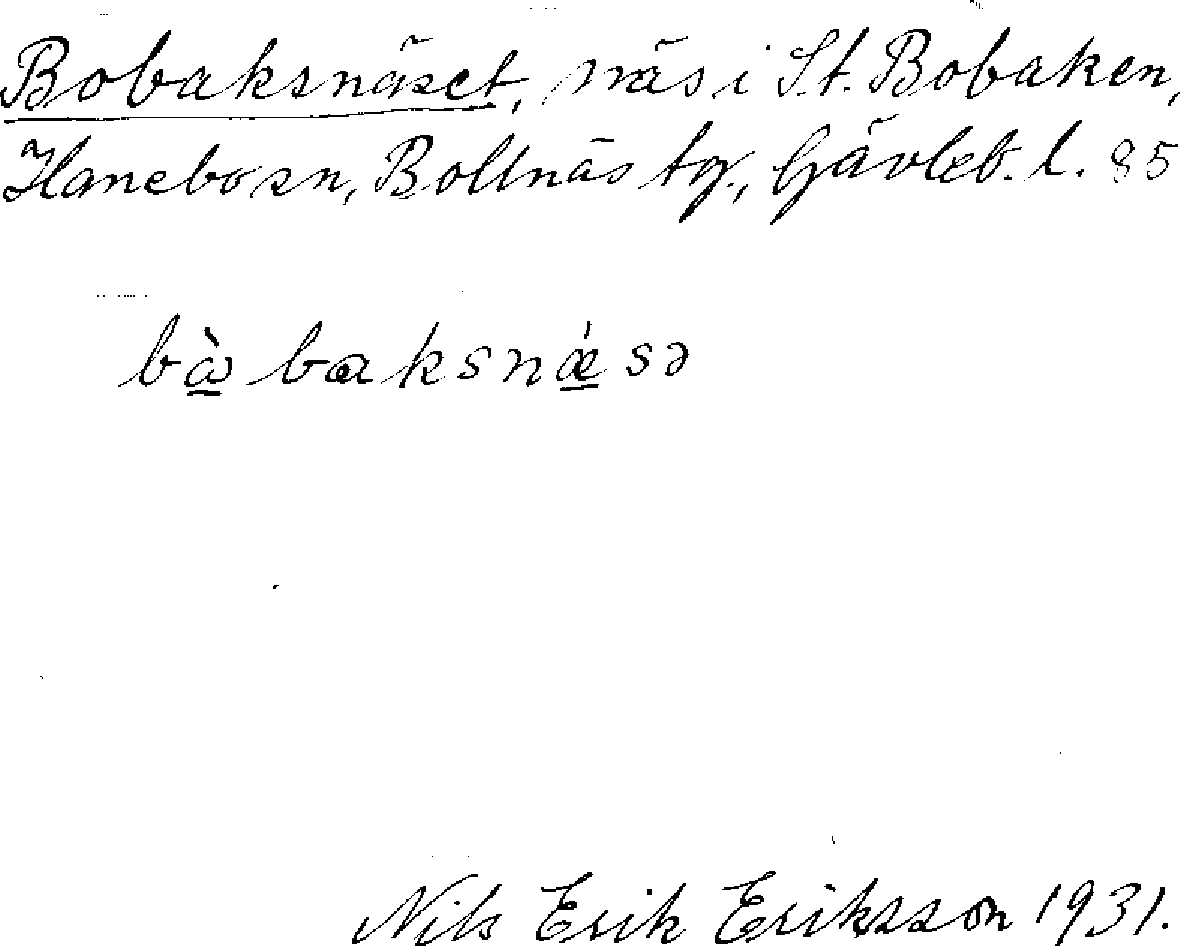 Bobaksnäset, näs i St. Bobaken,
Hanebo sn, Bollnäs tg., Gävleb. l. 85
bɷ̀bɑksnǽsə
Nils Erik Eriksson 1931.